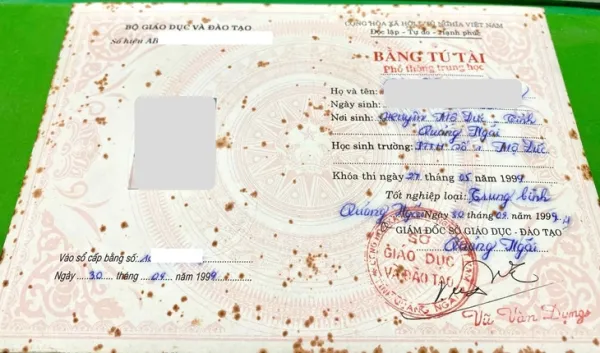 BỘ GIÁO DỤC VÀ ĐÀO TẠO
Số hiệu AB
CỘNG HÒA XÃ HỘI CHỦ NGHĨA VIỆT NAM
Độc lập - Tự do - Hạnh phúc
BẰNG TÚ TÀI
Phổ thông trung học
Họ và tên:
Ngày sinh:
Nơi sinh: Huyện Mộ Đức - Tỉnh
Quảng Ngãi
Học sinh trường: Mộ Đức
Khóa thi ngày 27 tháng 05 năm 1994
Tốt nghiệp loại: Trung bình
Quảng Ngãi Ngày 30 tháng 09 năm 1994
GIÁM ĐỐC SỞ GIÁO DỤC - ĐÀO TẠO
Quảng Ngãi
SỞ
GIÁO DỤC
VÀ ĐÀO TẠO
TỈNH QUẢNG NGÃI
Vào sổ cấp bằng số:
Ngày 30 tháng 09 năm 1994
Vũ Văn Dụng